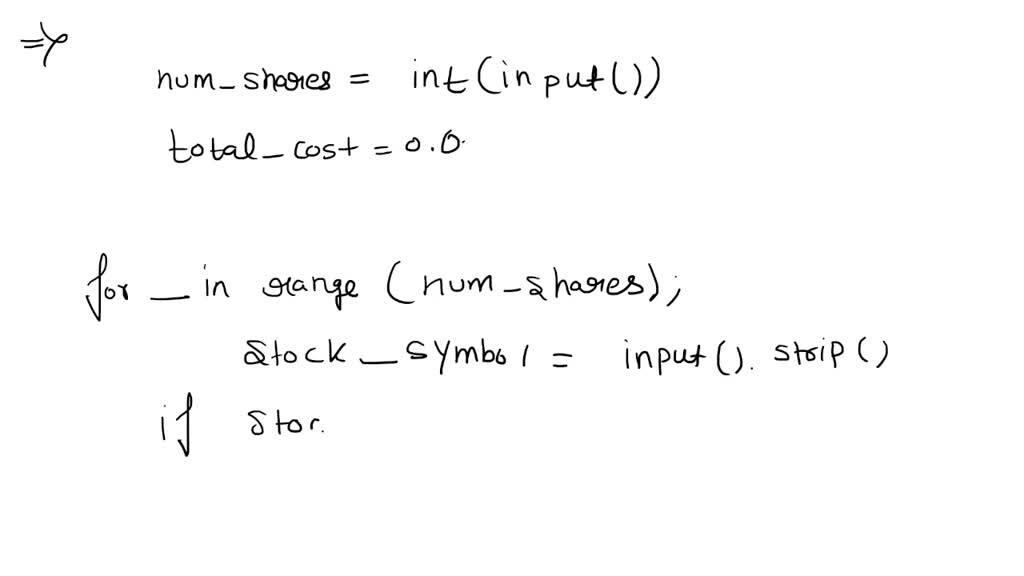 =>
num_shares = int(input())
total_cost = 0.0
for _ in range (num_shares);
stock_symbol = input(). strip()
if stor.